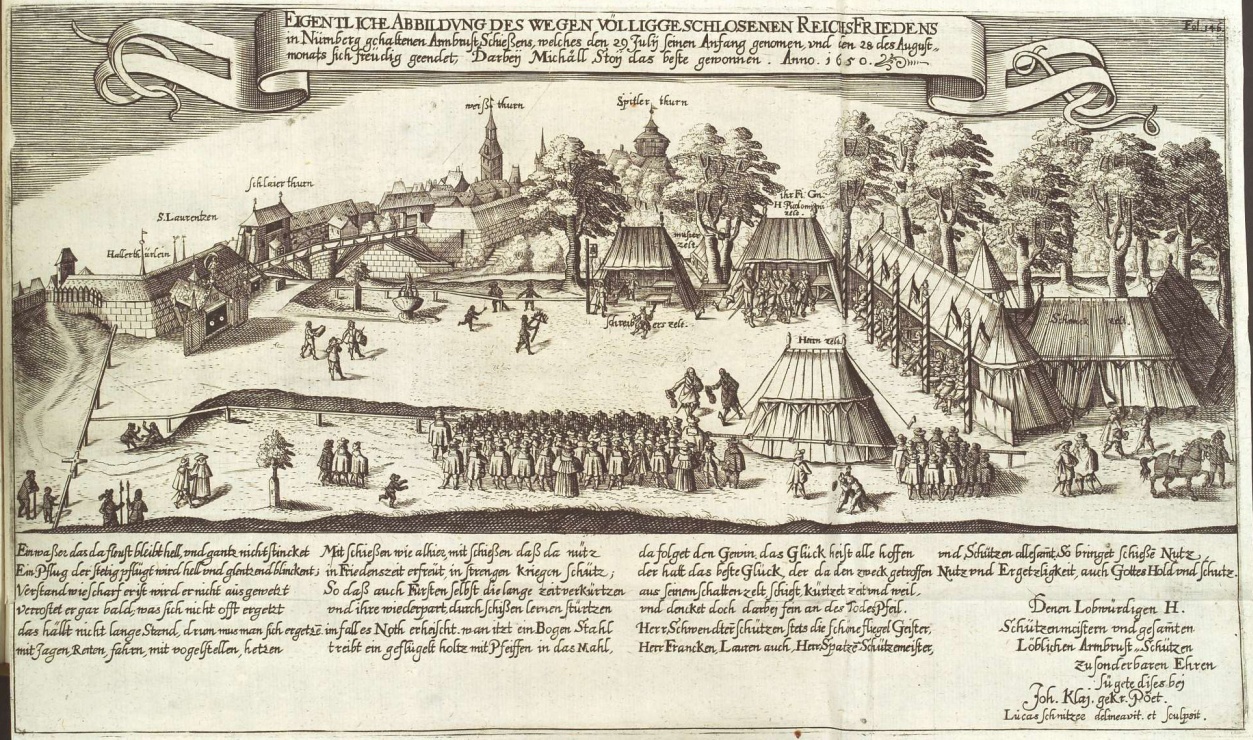 EIGENTLICHE ABBILDVNG DES WEGEN VÖLLIGGESCHLOSENEN REICHSFRIEDENS
in Nürnberg gehaltenen Armbrust Schießens, welches den 29 Julij seinen Anfang genomen, vnd den 28 des August-
monats sich freudig geendet, Darbeij Michäll Stoij das beste gewonnen. Anno. 1650.
Fol. 146.
weiß thurn
Spitler thurn
Schlaier thurn
S. Laurentzen
Hallerthürlein
Ihr Fr. Gn.
H
zelt.
muster
zelt.
Schreib zelt.
Herrn zelt.
Schenck zelt.
Ein waßer das da fleust bleibt hell, vnd gantz nicht stincket
Ein Pflug der stetig pflügt wird hell vnd glentzend blinckent;
Verstand wie scharf er ist wird er nicht ausgewetzt
verrostet er gar bald, was sich nicht offt ergetzt
das hällt nicht lange Stand, drum mus man sich ergetzē
mit Jagen, Reiten, fahrn, mit vogelstellen, hetzen
Mit schießen wie alhier, mit schießen daß da nütz
in Friedenszeit erfreut, in strengen kriegen schütz;
So daß auch Fürsten selbst die lange zeit verkürtzten
vnd ihre wiederpart, durch schißen lernen stürtzten
im fall es Noth erheischt. wan itzt ein Bogen Stahl
treibt ein geflügelt holtz mit Pfeiffen in das Mahl,
da folget den Gewin, das Glück heist alle hoffen
der hatt das beste Glück, der da den zweck getroffen
aus seinem schattenzelt schiest, kürtzet zeit vnd weil,
vnd dencket doch darbeij fein an des Todes Pfeil.
Herr, Schwendter schützen stets die schöne fliegel Geister,
Herr Francken, Lauren auch, Herr, Spatzē Schützemeister,
vnd Schützen allesamt, So bringet schießē Nutz,
Nutz vnd Ergetzligkeit, auch Gottes Hold vnd schutz.
Denen Lobwürdigen H.
Schützenmeistern vnd gesamten
Löblichen Armbrust-Schützen
zu sonderbaren Ehren
fügete dises bei
Joh. Klaj. gekr. Pöet.
Lucas schnitzer delineavit. et sculpsit.